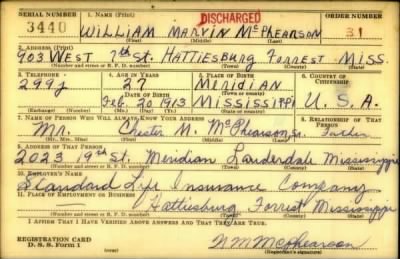 SERIAL NUMBER 1. NAME (Print) DISCHARGED ORDER NUMBER
3440 WILLIAM MARVIN McPHEARSON 31
(First) (Middle) (Last)
2. ADDRESS (Print)
903 WEST 7th St. HATTIESBURG FORREST MISS.
(Number and street or R. F. D. number) (Town) (County) (State)
3. TELEPHONE 4. AGE IN YEARS 5. PLACE OF BIRTH 6. COUNTRY OF CITIZENSHIP
299J 27 MERIDIAN
DATE OF BIRTH (Town or county)
Feb. 20 1913 MISSISSIPPI U.S.A.
(Exchange) (Number) (Mo.) (Day) (Yr.) (State or country)
7. NAME OF PERSON WHO WILL ALWAYS KNOW YOUR ADDRESS 8. RELATIONSHIP OF THAT PERSON
Mr. Chester M. McPhearson, Sr. Father
(Mr., Mrs., Miss) (First) (Middle) (Last)
9. ADDRESS OF THAT PERSON
2023 19th St. Meridian Lauderdale Mississippi
(Number and street or R. F. D. number) (Town) (County) (State)
10. EMPLOYER'S NAME
Standard Life Insurance Company
11. PLACE OF EMPLOYMENT OR BUSINESS
Hattiesburg Forrest Mississippi
(Number and street or R. F. D. number) (Town) (County) (State)
I AFFIRM THAT I HAVE VERIFIED ABOVE ANSWERS AND THAT THEY ARE TRUE.
REGISTRATION CARD
D. S. S. Form 1 WM McPhearson